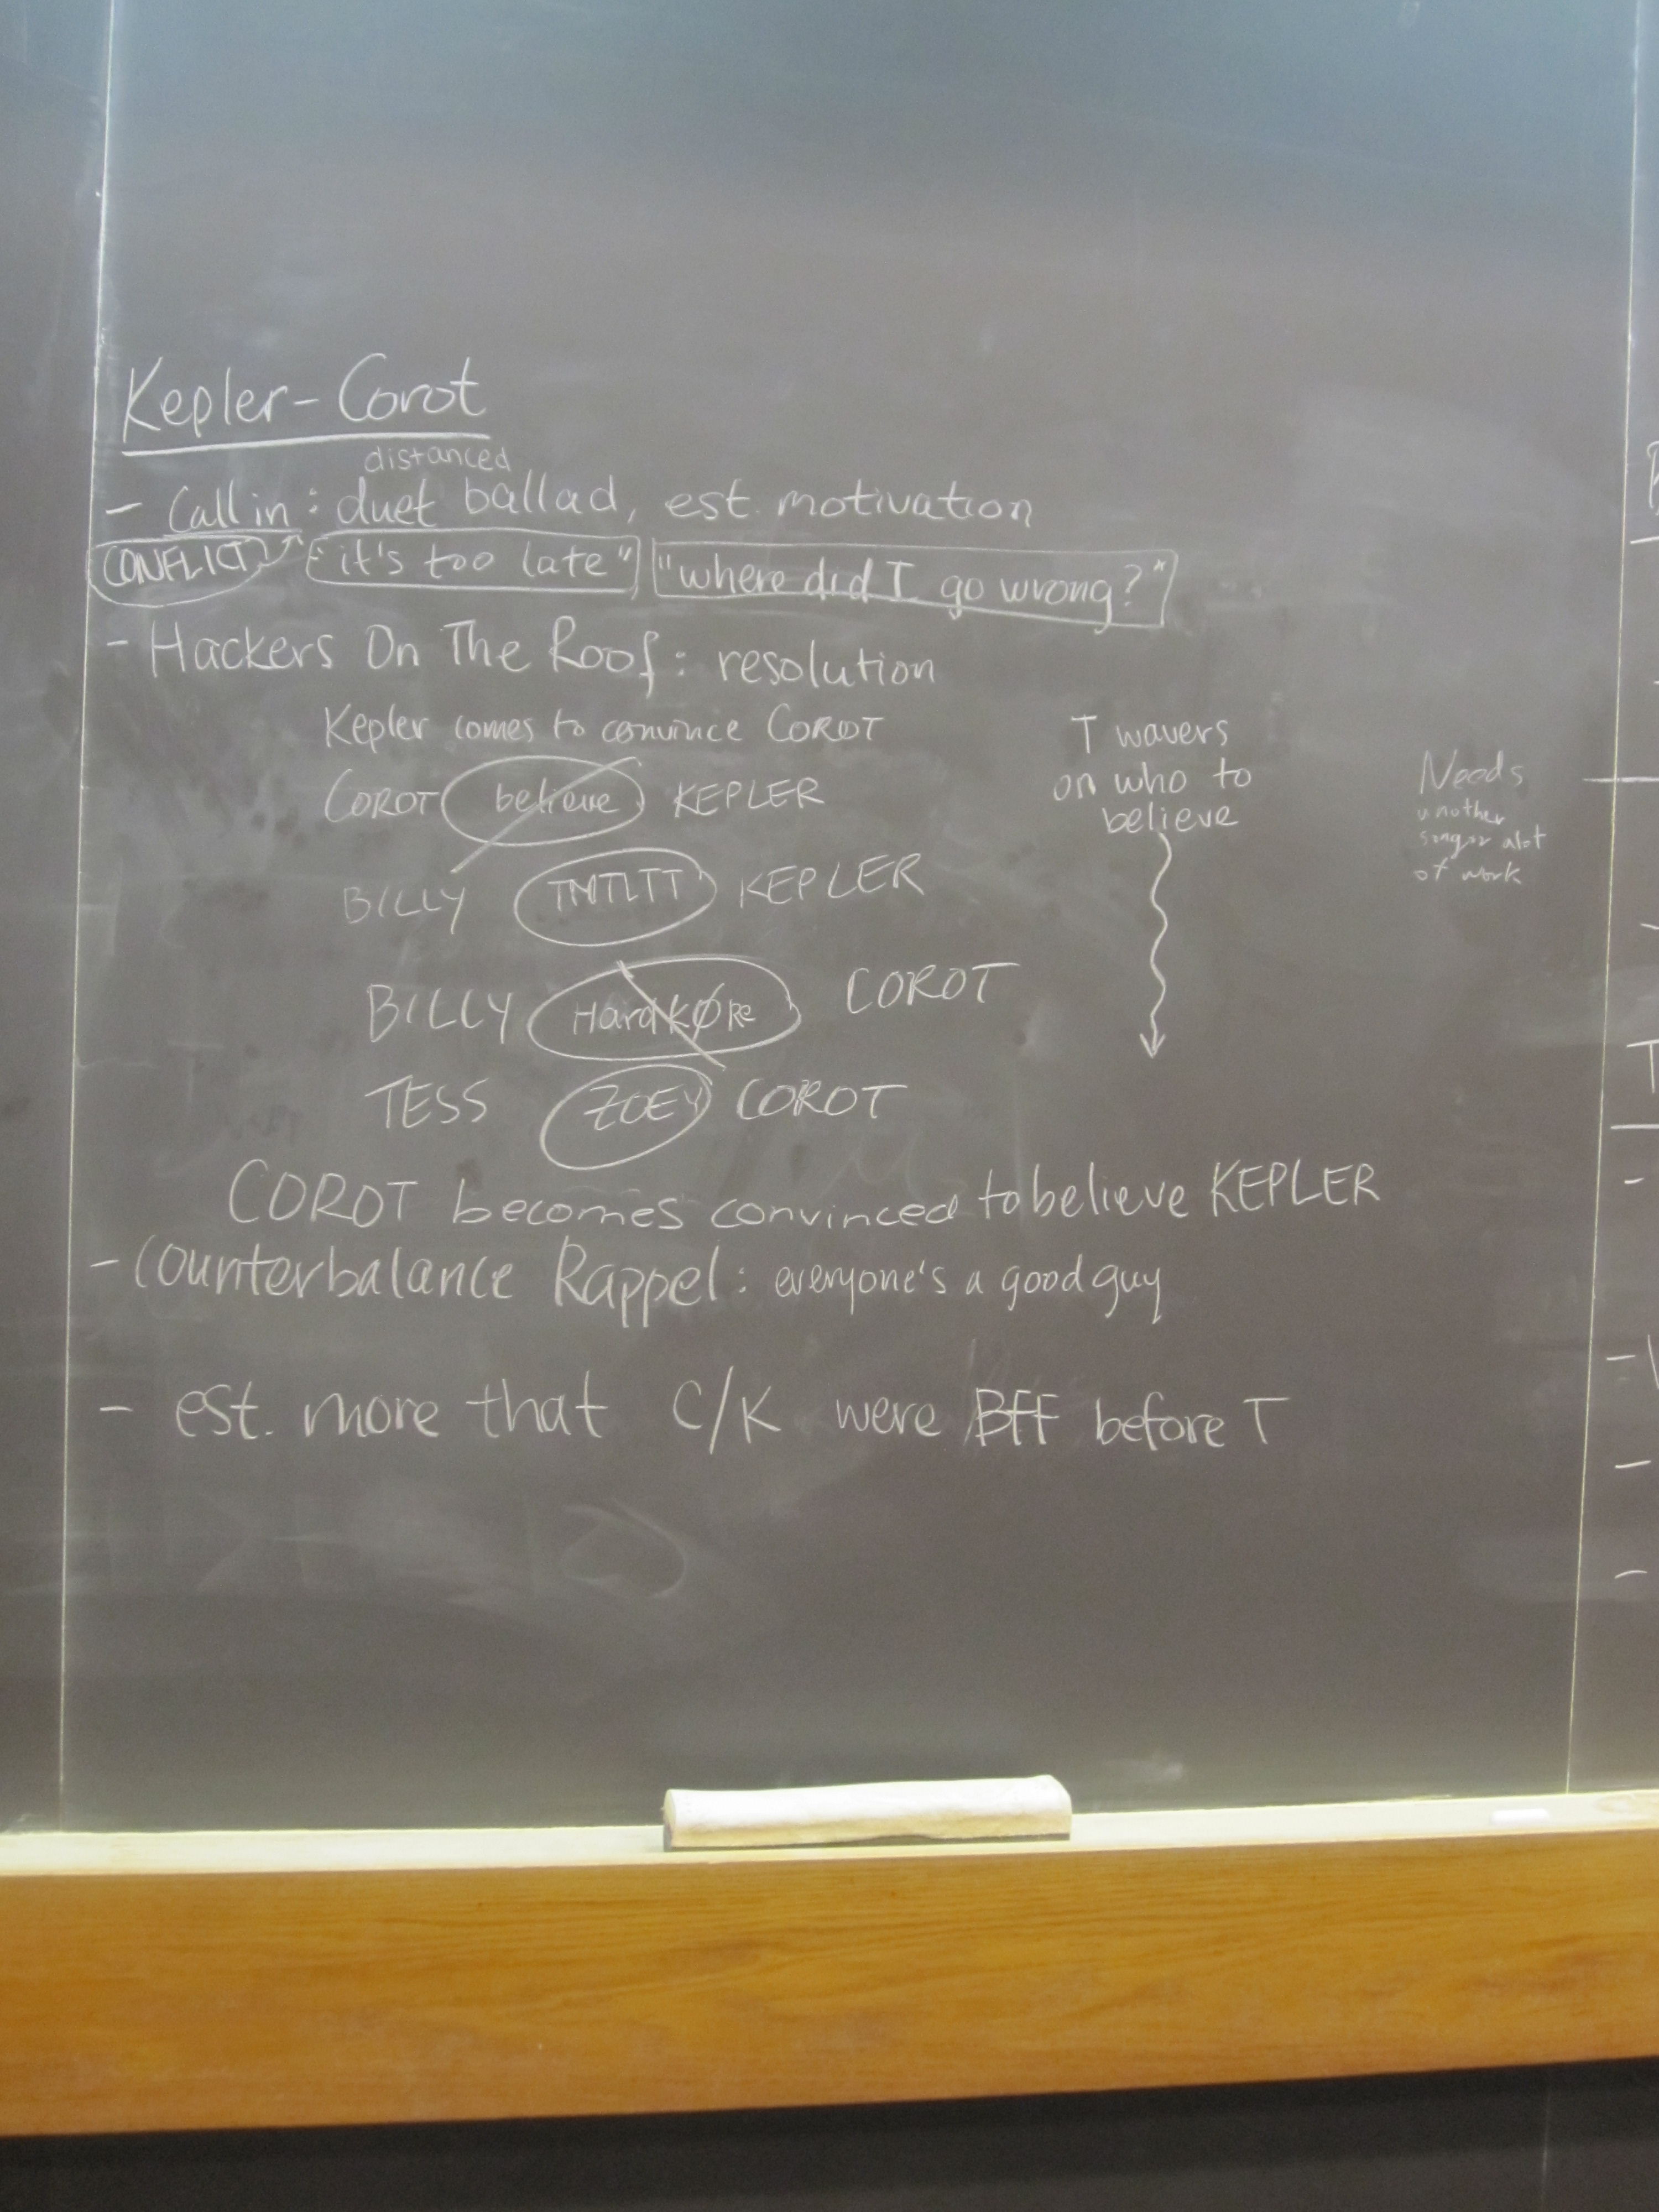 Kepler-Corot
distanced
- Call in: duet ballad, est. motivation
CONFLICT "it's too late" "where did I go wrong?"
- Hackers On The Roof: resolution
Kepler comes to convince COROT
COROT believe KEPLER
BILLY TMTLTT KEPLER
BILLY HardKØRe COROT
TESS ZOEY COROT
T wavers
on who to
believe
Needs
another
song or alot
of work
COROT becomes convinced to believe KEPLER
- Counterbalance Rappel: everyone's a good guy
- est. more that C/K were BFF before T